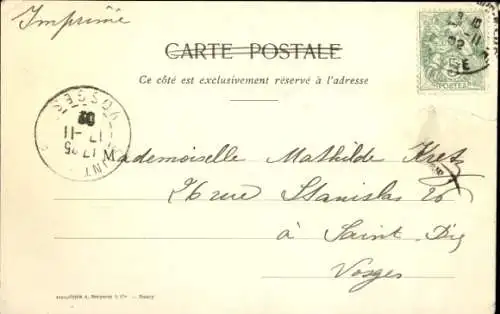 Imprimé
CARTE POSTALE
Ce côté est exclusivement réservé à l'adresse
17 -11
Mademoiselle Mathilde Kretz
26 rue Stanislas 26
à Saint Dié
Vosges
Nancy